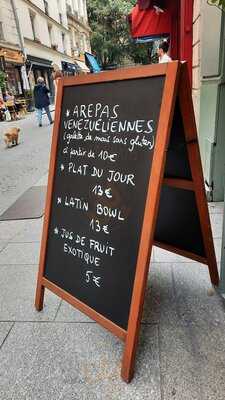 * AREPAS
VENEZUÉLIENNES
(galette de maïs sans gluten)
à partir de 10€
* PLAT DU JOUR
13€
* LATIN BOWL
13€
* JUS DE FRUIT
EXOTIQUE
5€